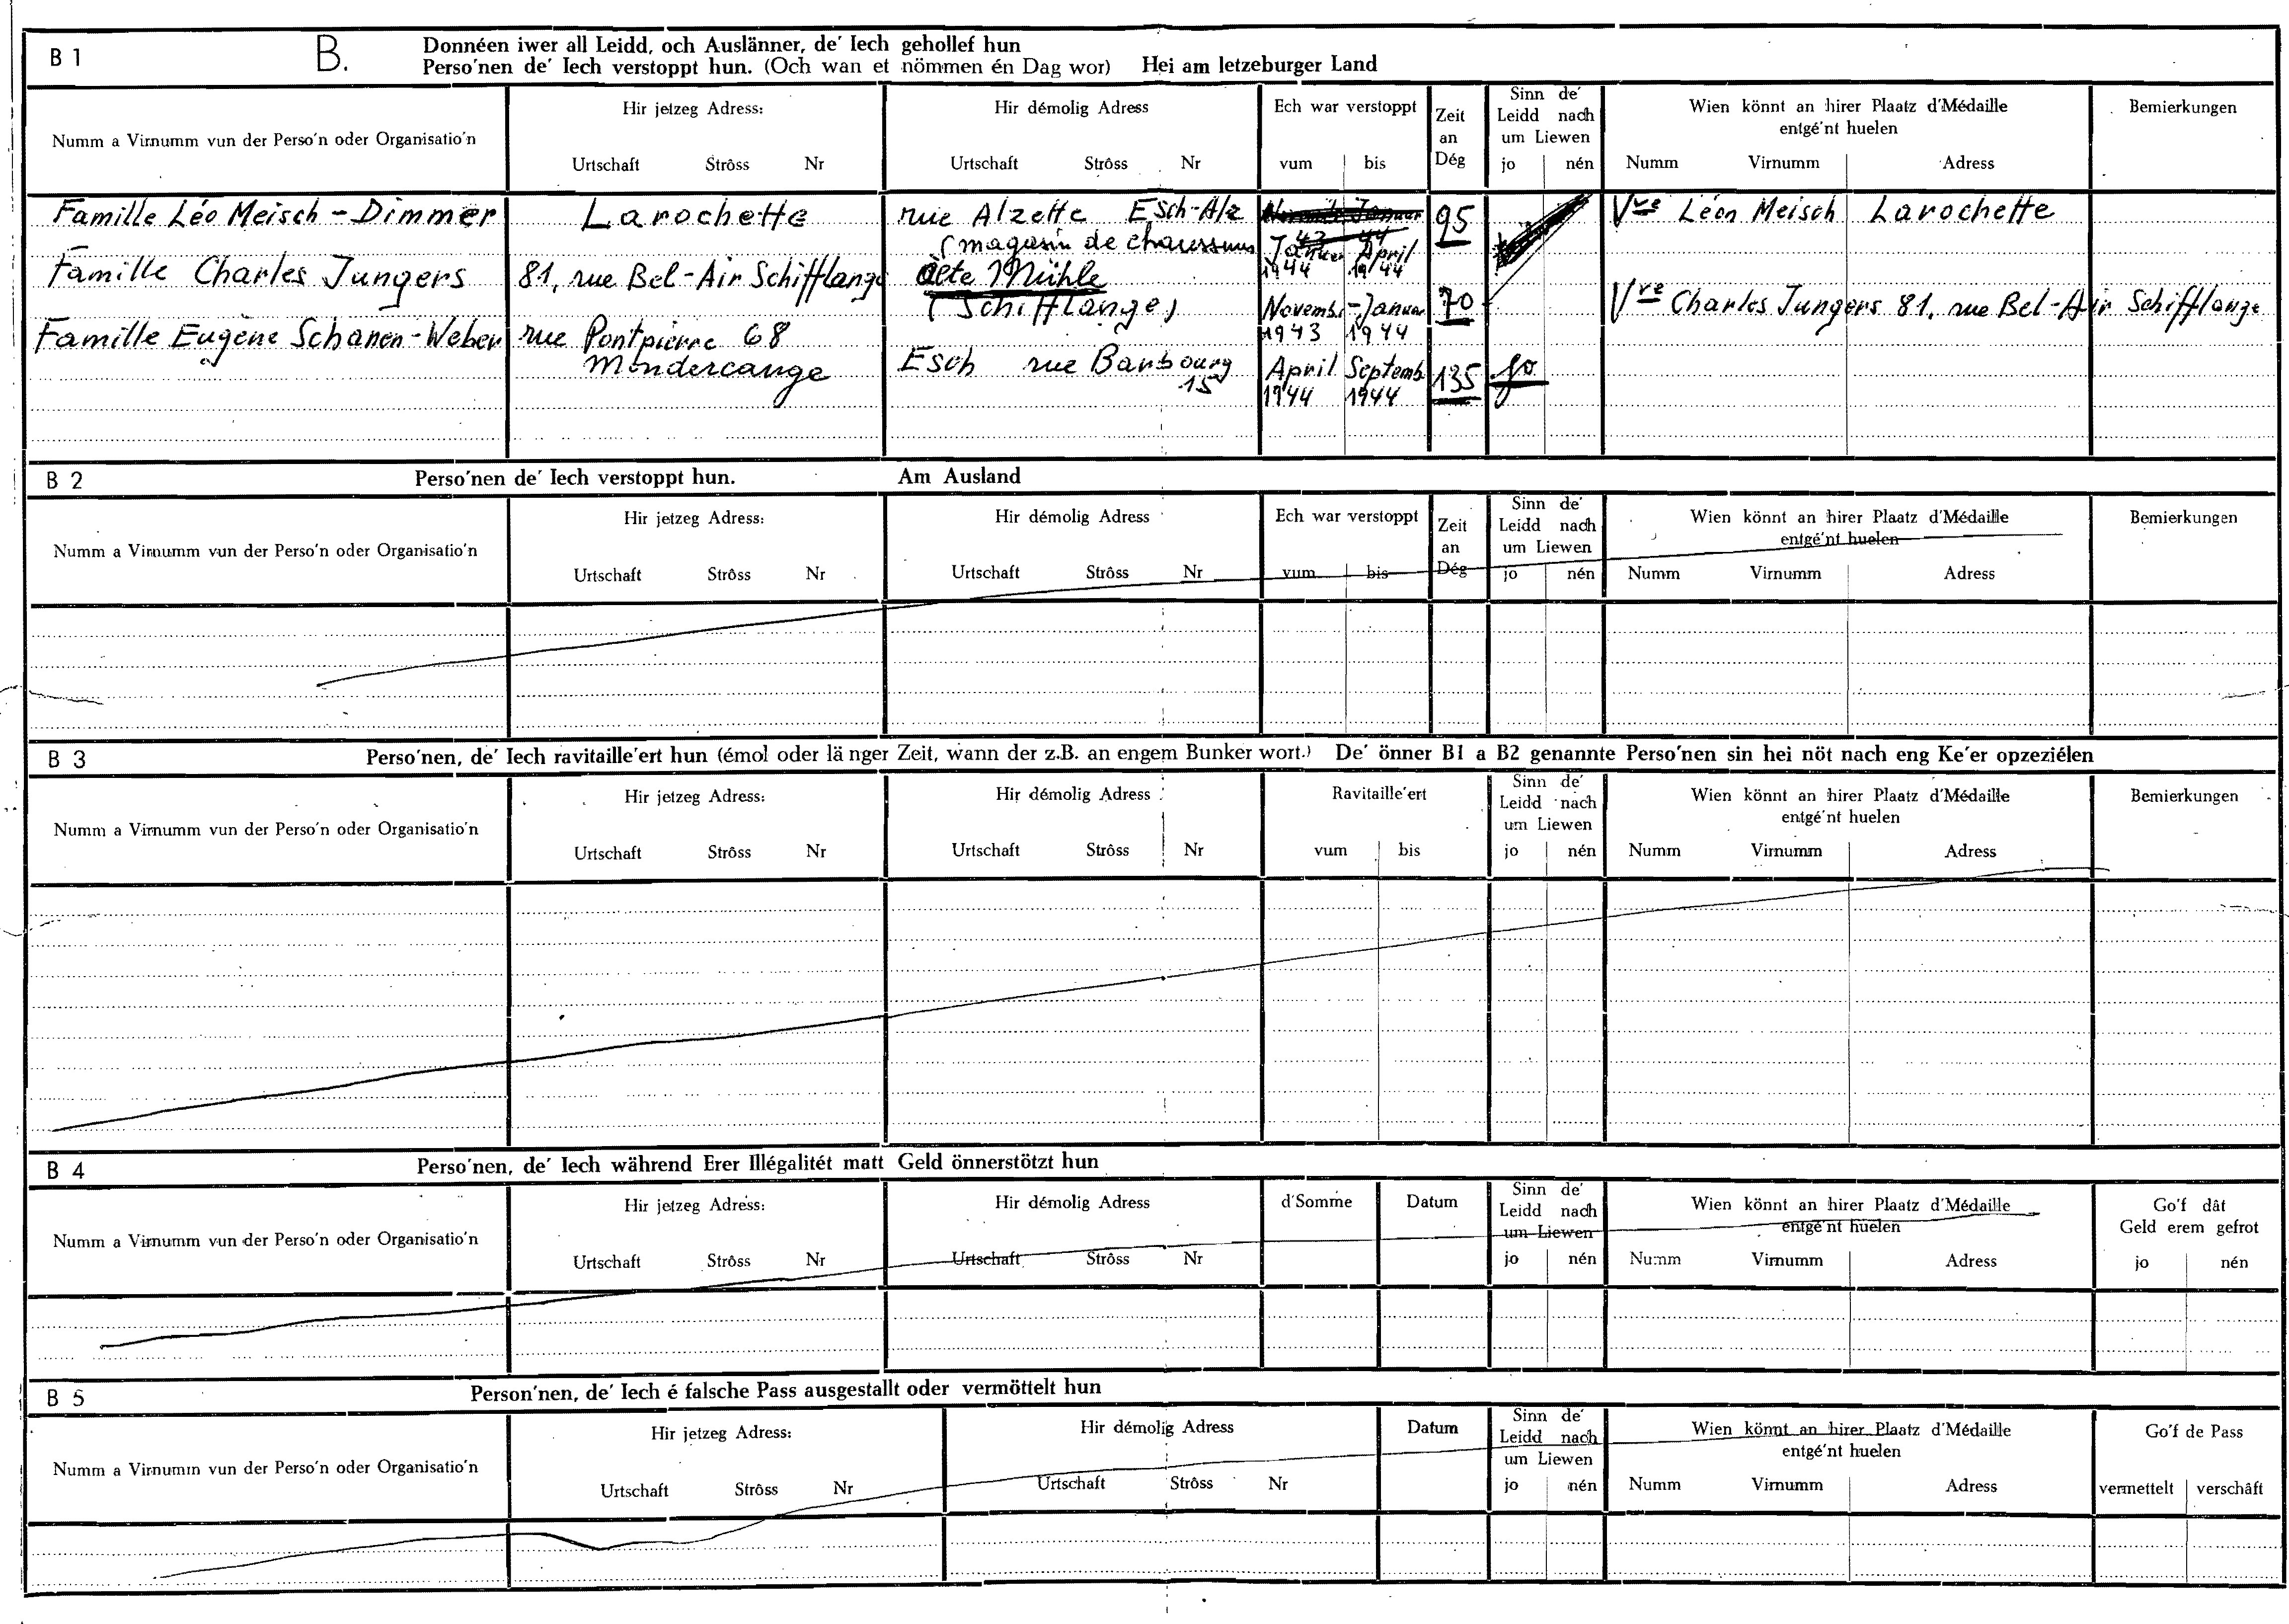 B 1
B.
Donnéen iwer all Leidd, och Auslänner, de' Iech gehollef hun
Perso'nen de' Iech verstoppt hun. (Och wan et nömmen én Dag wor) Hei am letzeburger Land
Numm a Virnumm vun der Perso'n oder Organisatio'n
Hir jetzeg Adress:
Urtschaft Strôss Nr
Hir démolig Adress
Urtschaft Strôss Nr
Ech war verstoppt
vum bis
Zeit
an
Dég
Sinn de'
Leidd nach
um Liewen
jo nén
Wien könnt an hirer Plaatz d'Médaille
entgé'nt huelen
Numm Virnumm Adress
Bemierkungen
Famille Léo Meisch - Dimmer Larochette rue Alzette Esch-Alz 95 Vve Léon Meisch Larochette
(magasin de chaussures Januar April
1944 1944
Famille Charles Jungers 81, rue Bel-Air Schifflange alte Mühle
(Schifflange) Novemb. - Januar 70 Vve Charles Jungers 81, rue Bel-Air Schifflange
1943 1944
Famille Eugène Schanen-Weber rue Pontpierre 68
Mondercange Esch rue Barbourg April Septemb 135 jo
15 1944 1944
B 2
Perso'nen de' Iech verstoppt hun. Am Ausland
Numm a Virnumm vun der Perso'n oder Organisatio'n
Hir jetzeg Adress:
Urtschaft Strôss Nr
Hir démolig Adress
Urtschaft Strôss Nr
Ech war verstoppt
vum bis
Zeit
an
Dég
Sinn de'
Leidd nach
um Liewen
jo nén
Wien könnt an hirer Plaatz d'Médaille
entgé'nt huelen
Numm Virnumm Adress
Bemierkungen
B 3
Perso'nen, de' Iech ravitaille'ert hun (émol oder länger Zeit, wann der z.B. an engem Bunker wort.) De' önner B1 a B2 genannte Perso'nen sin hei nöt nach eng Ke'er opzeziélen
Numm a Virnumm vun der Perso'n oder Organisatio'n
Hir jetzeg Adress:
Urtschaft Strôss Nr
Hir démolig Adress
Urtschaft Strôss Nr
Ravitaille'ert
vum bis
Sinn de'
Leidd nach
um Liewen
jo nén
Wien könnt an hirer Plaatz d'Médaille
entgé'nt huelen
Numm Virnumm Adress
Bemierkungen
B 4
Perso'nen, de' Iech während Erer Illégalitét matt Geld önnerstötzt hun
Numm a Virnumm vun der Perso'n oder Organisatio'n
Hir jetzeg Adress:
Urtschaft Strôss Nr
Hir démolig Adress
Urtschaft Strôss Nr
d'Somme
Datum
Sinn de'
Leidd nach
um Liewen
jo nén
Wien könnt an hirer Plaatz d'Médaille
entgé'nt huelen
Numm Virnumm Adress
Go'f dât
Geld erem gefrot
jo nén
B 5
Person'nen, de' Iech é falsche Pass ausgestallt oder vermöttelt hun
Numm a Virnumm vun der Perso'n oder Organisatio'n
Hir jetzeg Adress:
Urtschaft Strôss Nr
Hir démolig Adress
Urtschaft Strôss Nr
Datum
Sinn de'
Leidd nach
um Liewen
jo nén
Wien könnt an hirer Plaatz d'Médaille
entgé'nt huelen
Numm Virnumm Adress
Go'f de Pass
vermettelt verschâft